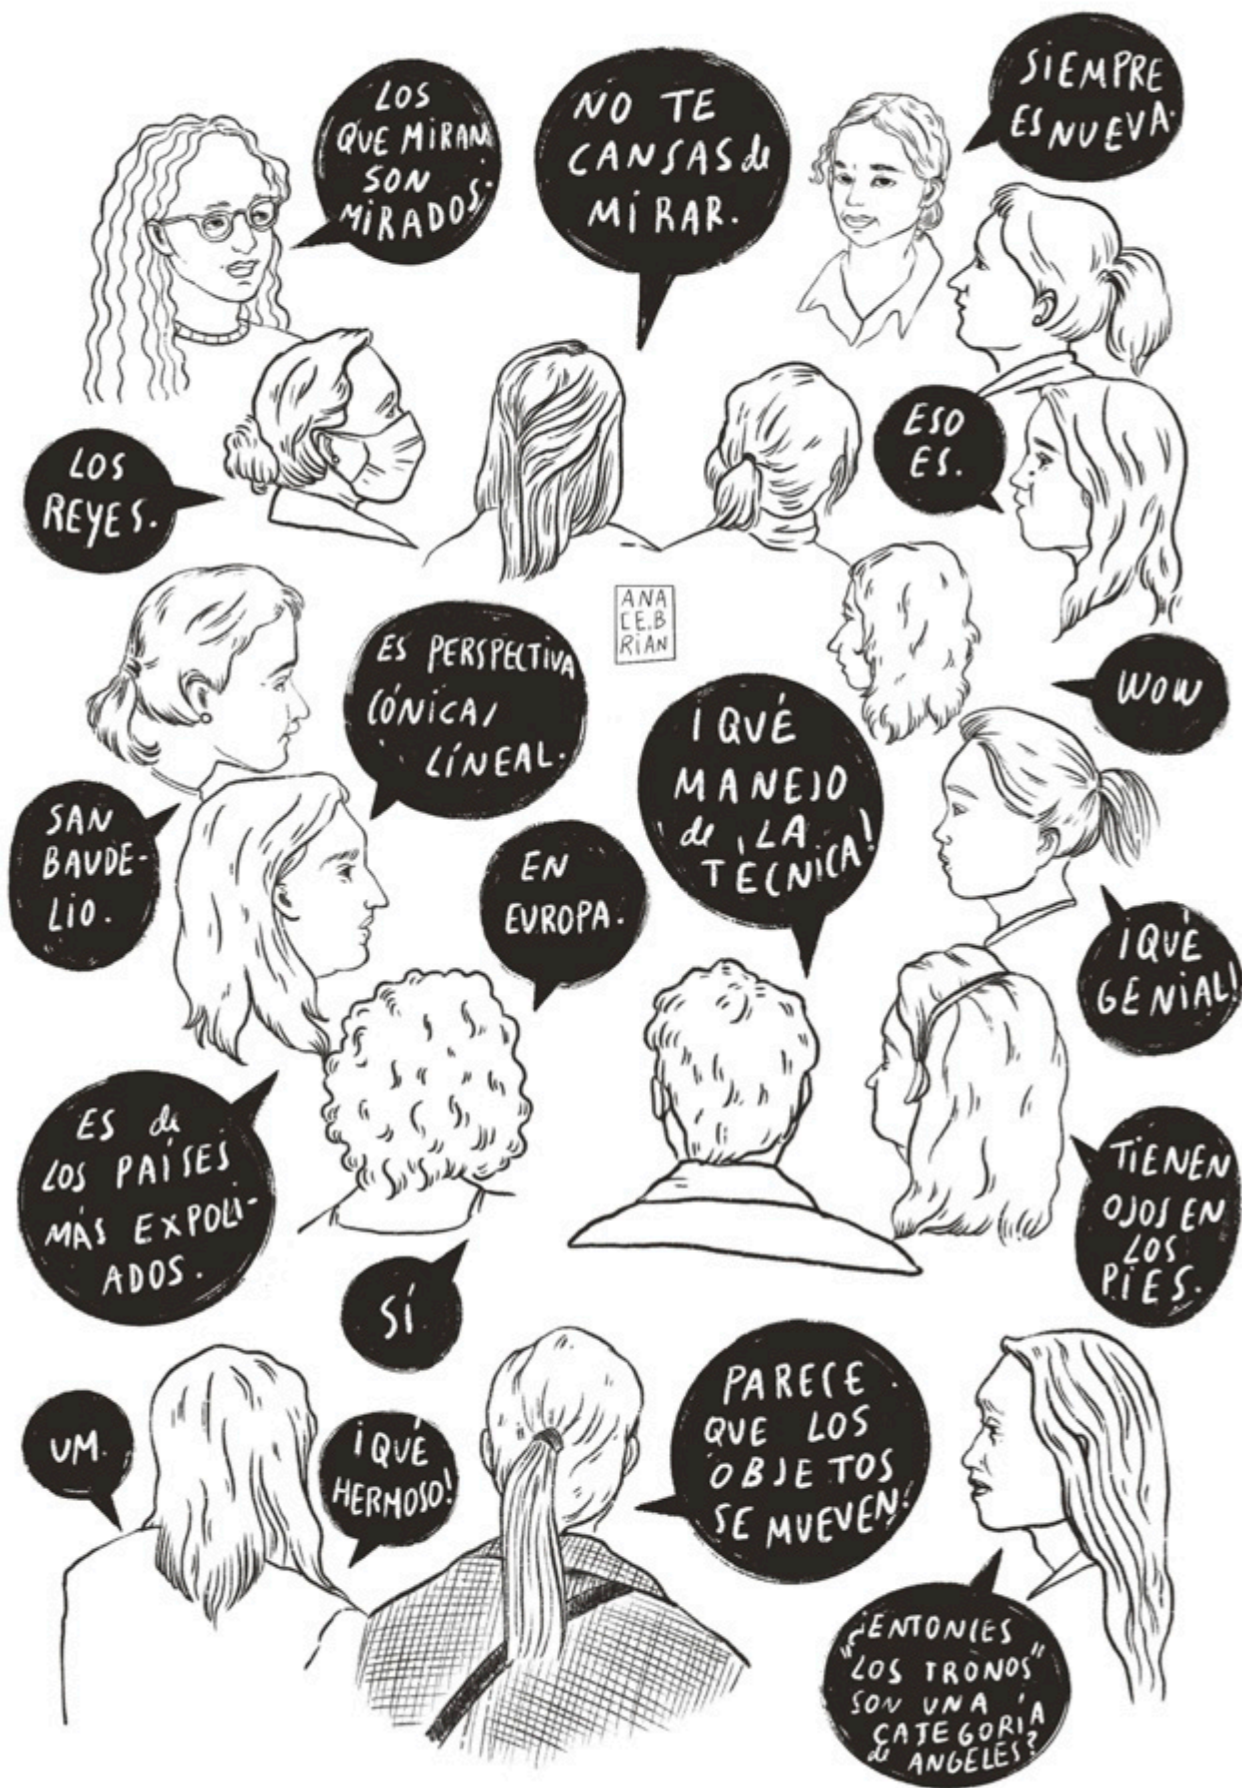 LOS
QUE MIRAN
SON
MIRADOS.
NO TE
CANSAS de
MIRAR.
SIEMPRE
ES NUEVA.
LOS
REYES.
ESO
ES.
ANA
CE.B
RIAN
ES PERSPECTIVA
CÓNICA/
LÍNEAL.
WOW
SAN
BAUDE-
LIO.
¡QUÉ
MANEJO
de LA
TÉCNICA!
EN
EUROPA.
¡QUÉ
GENIAL!
ES de
LOS PAÍSES
MÁS EXPOLI-
ADOS.
TIENEN
OJOS EN
LOS
PIES.
SÍ
UM.
¡QUÉ
HERMOSO!
PARECE
QUE LOS
OBJETOS
SE MUEVEN.
¿ENTONCES
"LOS TRONOS"
SON UNA
CATEGORÍA
de ANGELES?